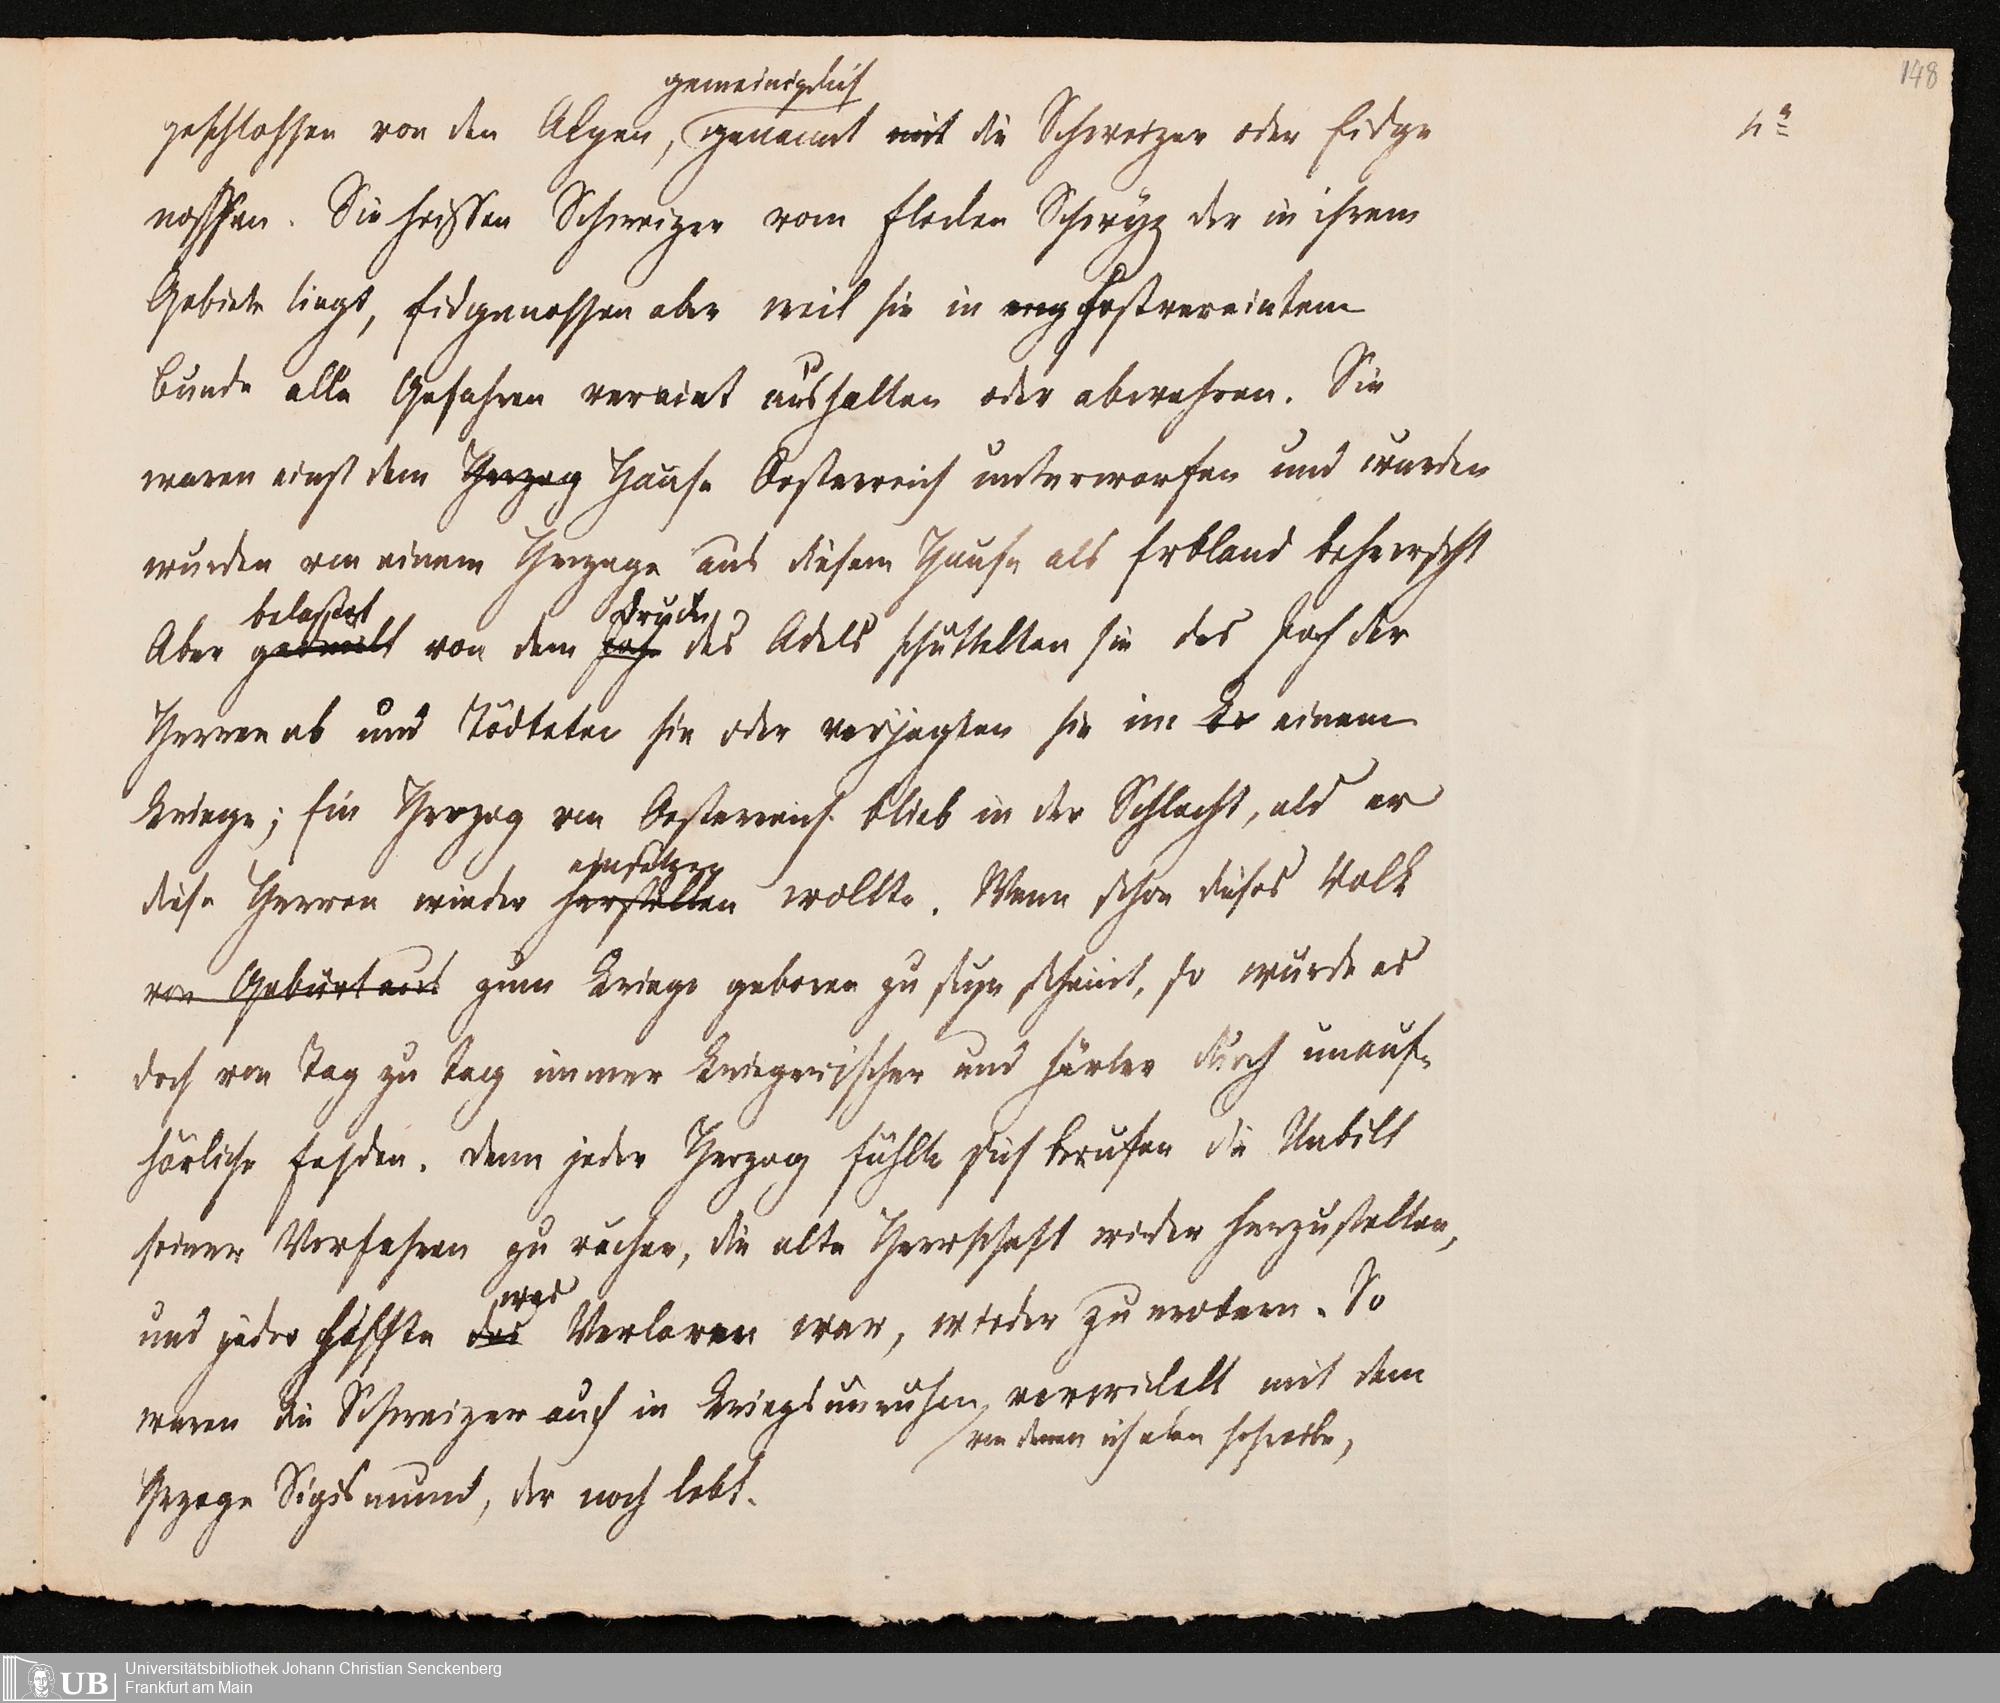 148
gemeiniglich
geschlossen von den Alpen, genannt mit die Schweizer oder Eidge
nossen. Sie heissen Schweizer vom Flecken Schwyz der in ihrem
Gebiete liegt, Eidgenossen aber weil sie in eng festvereintem
Bunde alle Gefahren vereint aushalten oder abwehren. Sie
waren einst dem Herzog Hause Oesterreich unterworfen und wurden
wurden von einem Herzoge aus diesem Hause als Erbland beherrscht
belastet Drucke
Aber gedrückt von dem Joche des Adels schüttelten sie das Joch der
Herren ab und Tödteten sie oder verjagten sie im Kr einem
Kriege; Ein Herzog von Oesterreich blieb in der Schlacht, als er
einsetzen
diese Herren wieder herstellen wollte. Wenn schon dieses Volk
von Geburt aus zum Kriege geboren zu seyn scheint, so wurde es
doch von Tag zu Tag immer kriegerischer und härter durch unauf-
hörliche Fehden. Denn jeder Herzog fühlte sich berufen die Unbilt
seiner Vorfahren zu rächen, die alte Herrschaft wieder herzustellen,
was
und jeder hoffte das Verloren war, wieder zu erobern. So
waren die Schweizer auch in Kriegsunruhen verwickelt mit dem
von denen ich eben schreibe,
Herzoge Sigismund, der noch lebt.
Universitätsbibliothek Johann Christian Senckenberg
Frankfurt am Main
UB